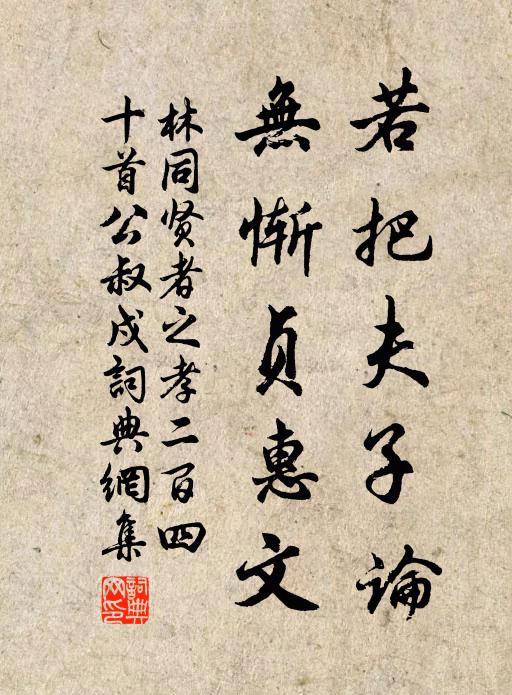 若把夫子論
無慚貞惠文
林同贤者之孝二百四
十首公叔戍詞典網集
詞典网印